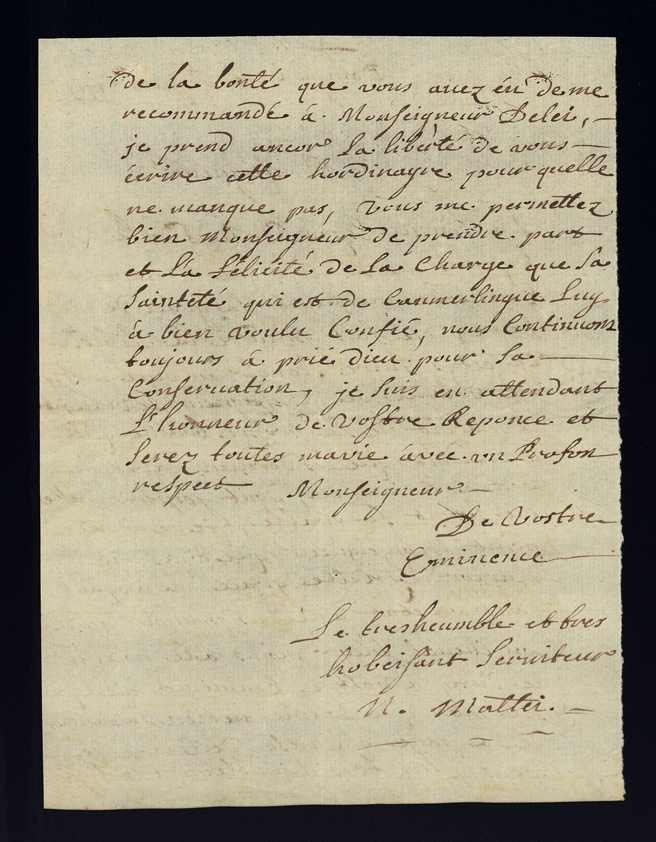 de la bonté que vous avez éu de me
recommandé à Monseigneur Delei,
je prend ancor la liberté de vous
écrire cette hordinayre pour quelle
ne manque pas, Vous me permettez
bien Monseigneur de prendre part
et La félicité de La Charge que Sa
Sainteté qui est de Caumerlingue Luy
à bien voulu Confié, nous Continuons
toujours à prié dieu pour Sa
Conservation, je suis en attendant
L'honneur de Vostre Reponce et
Serez toutes mavie àvec un Profon
respect Monseigneur
De Vostre
Eminence
Le tresheumble et tres
hobeisant Serviteur
N. Mattei.